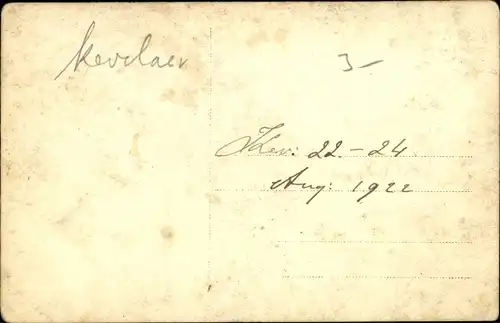 Kevelaer
3-
Kev: 22.-24
Aug: 1922